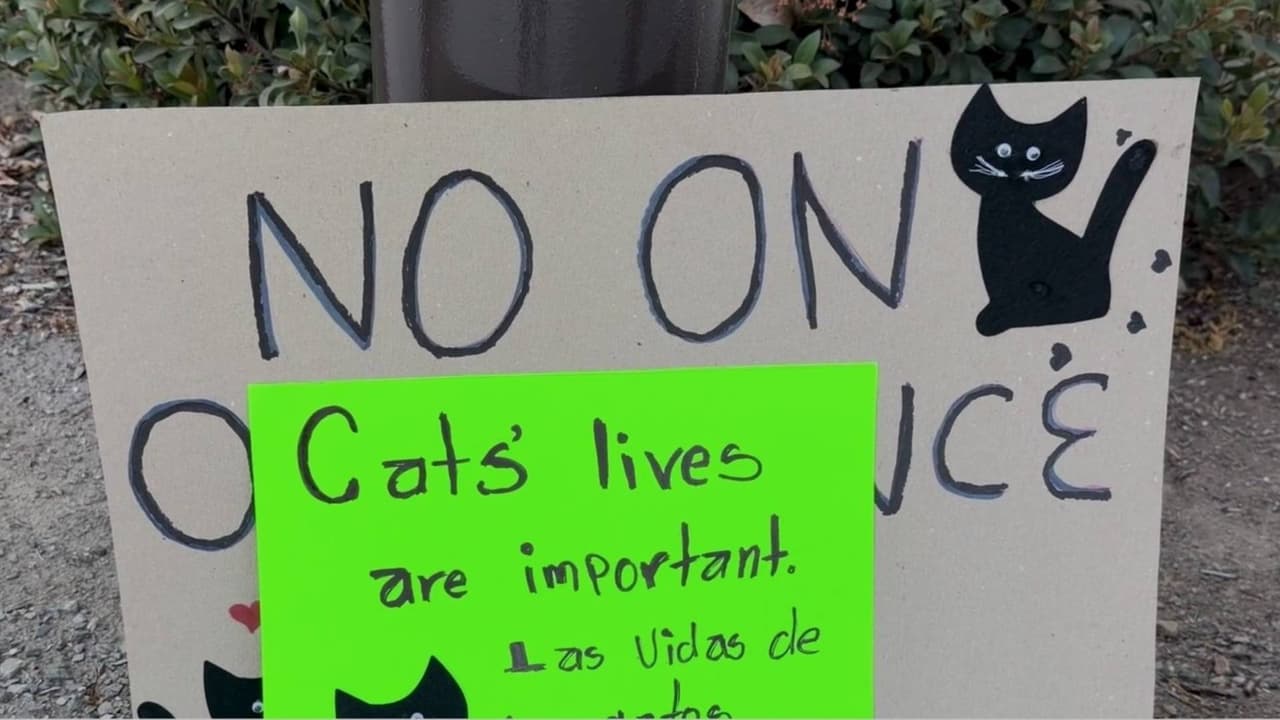 NO ON
Cats' lives
are important.
Las Vidas de